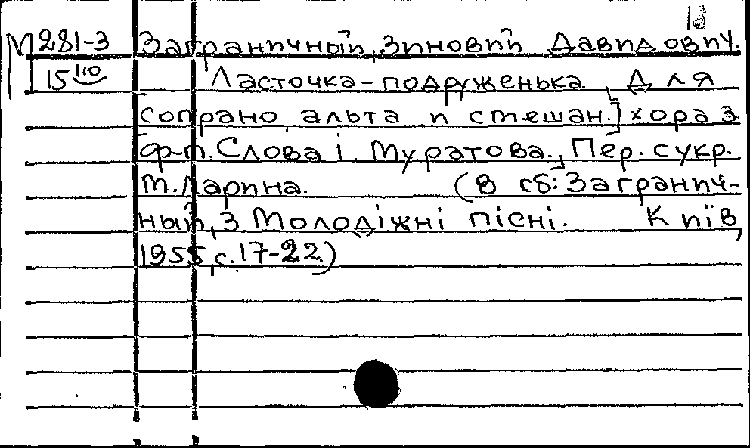 М281-3 Заграничный, Зиновий Давидович.
15 Ласточка-подруженька. Для
сопрано, альта и смешан.] хора з
ф-п. Слова І. Муратова., Пер. с укр.
М. Ларина. (В сб: Загранич-
ный, З Молодіжні пісні. Київ,
1955, с. 17-22)